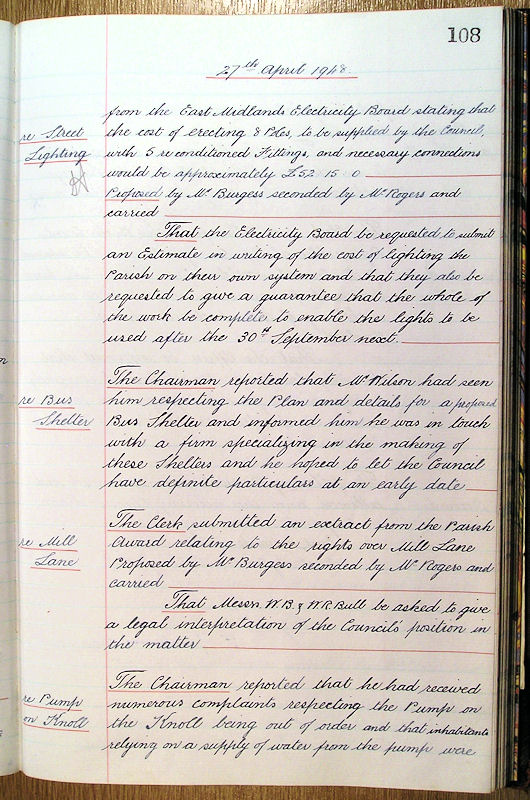 108
27th April 1948.
re Street
Lighting
from the East Midlands Electricity Board stating that
the cost of erecting 8 Poles, to be supplied by the Council,
with 5 reconditioned Fittings, and necessary connections
would be approximately £52 15 0
Proposed by Mr Burgess seconded by Mr Rogers and
carried
That the Electricity Board be requested to submit
an Estimate in writing of the cost of lighting the
Parish on their own system and that they also be
requested to give a guarantee that the whole of
the work be complete to enable the lights to be
used after the 30th September next.
re Bus
Shelter
The Chairman reported that Mr Wilson had seen
him respecting the Plan and details for a proposed
Bus Shelter and informed him he was in touch
with a firm specializing in the making of
these Shelters and he hoped to let the Council
have definite particulars at an early date
re Mill
Lane
The Clerk submitted an extract from the Parish
Award relating to the rights over Mill Lane
Proposed by Mr Burgess seconded by Mr Rogers and
carried
That Messrs W.B. & W.R. Bull be asked to give
a legal interpretation of the Council's position in
the matter
re Pump
on Knoll
The Chairman reported that he had received
numerous complaints respecting the Pump on
the Knoll being out of order and that inhabitants
relying on a supply of water from the pump were